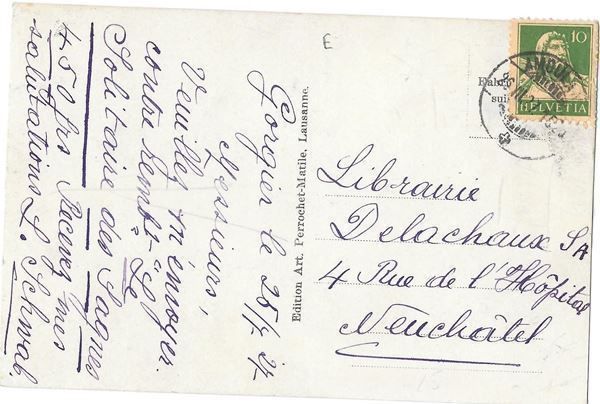 Gorgier le 25/7 27
Messieurs,
Veuillez m'envoyer
contre rembt "Le
Solitaire des Sagnes
4.50 frs Recevez mes
salutations L. Schwab.
E
Edition Art. Perrochet-Matile, Lausanne.
10
HELVETIA
AMBULANT
Fabri
sui
Librairie
Delachaux SA
4 Rue de l'Hôpital
Neuchâtel